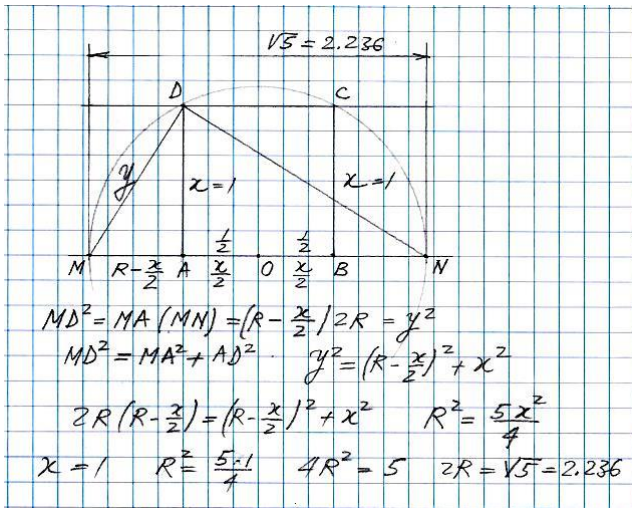 √5 = 2.236
D C
y x=1 x=1
1/2 1/2
M R-x/2 A x/2 O x/2 B N
MD² = MA (MN) = (R - x/2) 2R = y²
MD² = MA² + AD² y² = (R - x/2)² + x²
2R (R - x/2) = (R - x/2)² + x² R² = 5x²/4
x = 1 R² = 5·1/4 4R² = 5 2R = √5 = 2.236